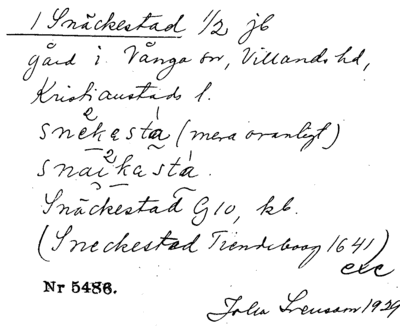 1 Snäckestad 1/2 jb
gård i Vånga sn, Villands hd,
Kristianstads l.
snekastà (mera ovanligt)
snaikastà.
Snäckestad G10, kb.
(Sneckestad Tiendeboog 1641)
etc
Nr 5486.
1929